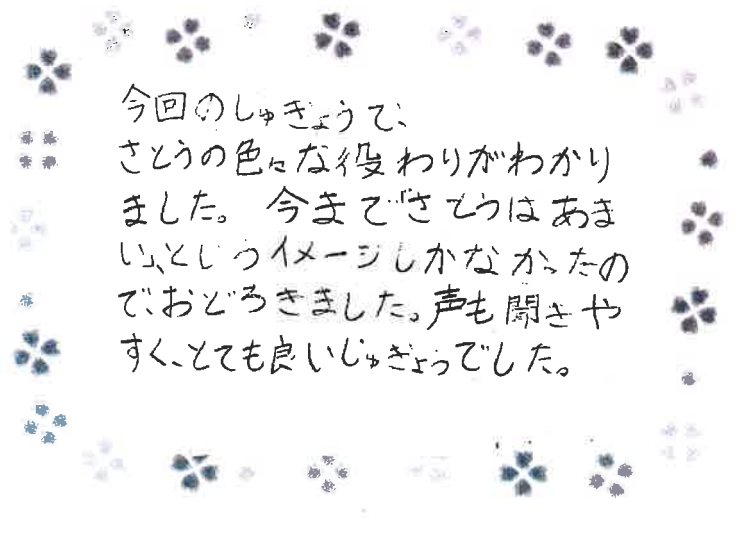 今回のしゅぎょうで、
さとうの色々な役わりがわかり
ました。 今まで「さとうはあま
い」、というイメージしかなかったの
で、おどろきました。声も聞きや
すく、とても良いじゅぎょうでした。